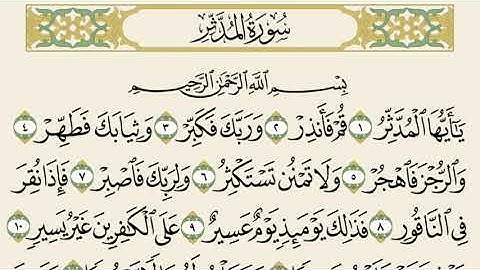 سُورَةُ المُدَّثِّر
بِسْمِ اللَّهِ الرَّحْمَٰنِ الرَّحِيمِ
يَٰٓأَيُّهَا ٱلْمُدَّثِّرُ ١ قُمْ فَأَنذِرْ ٢ وَرَبَّكَ فَكَبِّرْ ٣ وَثِيَابَكَ فَطَهِّرْ ٤
وَٱلرُّجْزَ فَٱهْجُرْ ٥ وَلَا تَمْنُن تَسْتَكْثِرُ ٦ وَلِرَبِّكَ فَٱصْبِرْ ٧ فَإِذَا نُقِرَ
فِى ٱلنَّاقُورِ ٨ فَذَٰلِكَ يَوْمَئِذٍ يَوْمٌ عَسِيرٌ ٩ عَلَى ٱلْكَٰفِرِينَ غَيْرُ يَسِيرٍ ١٠